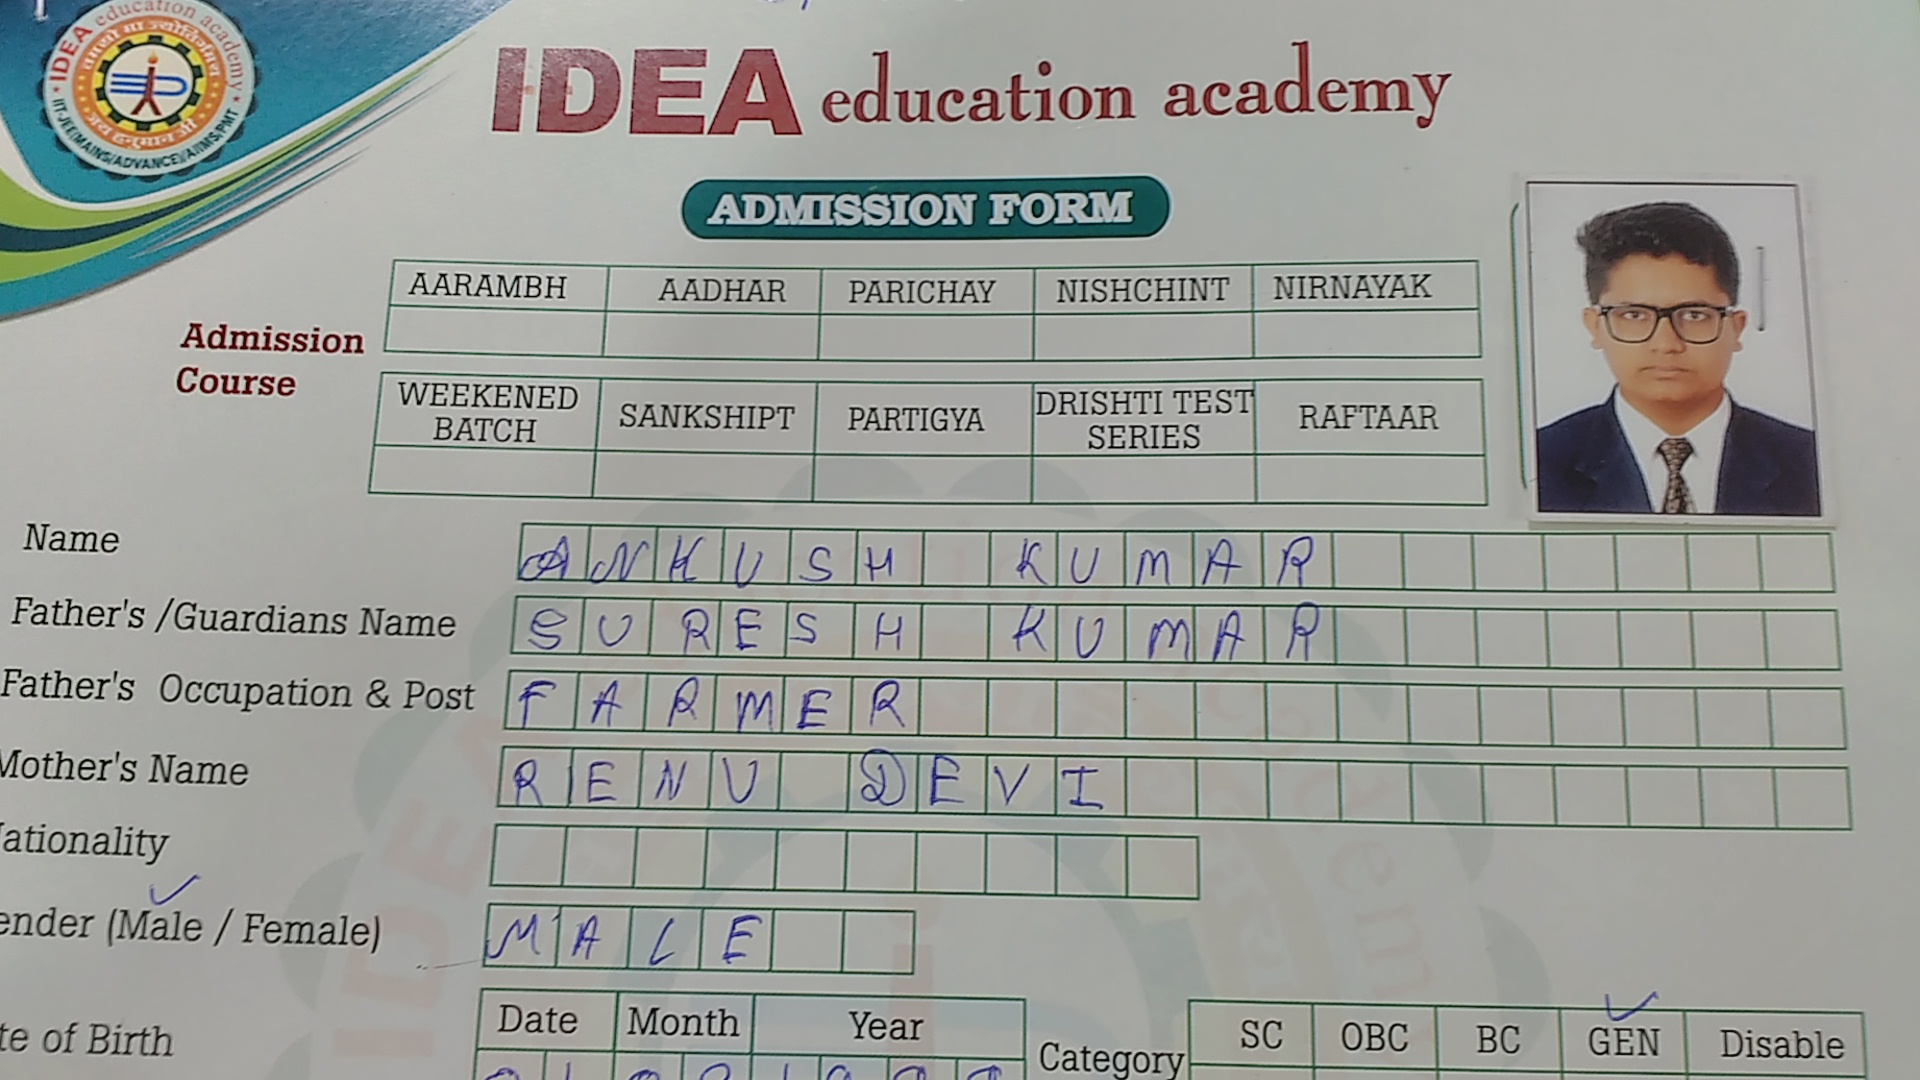 IDEA education academy
IIT-JEE(MAINS/ADVANCE)/AIIMS/PMT
IDEA education academy
ADMISSION FORM
Admission Course
AARAMBH AADHAR PARICHAY NISHCHINT NIRNAYAK
WEEKENED BATCH SANKSHIPT PARTIGYA DRISHTI TEST SERIES RAFTAAR
Name ANKUSH KUMAR
Father's /Guardians Name SURESH KUMAR
Father's Occupation & Post FARMER
Mother's Name RENU DEVI
ationality
ender (Male / Female) MALE
te of Birth Date Month Year
Category SC OBC BC GEN Disable